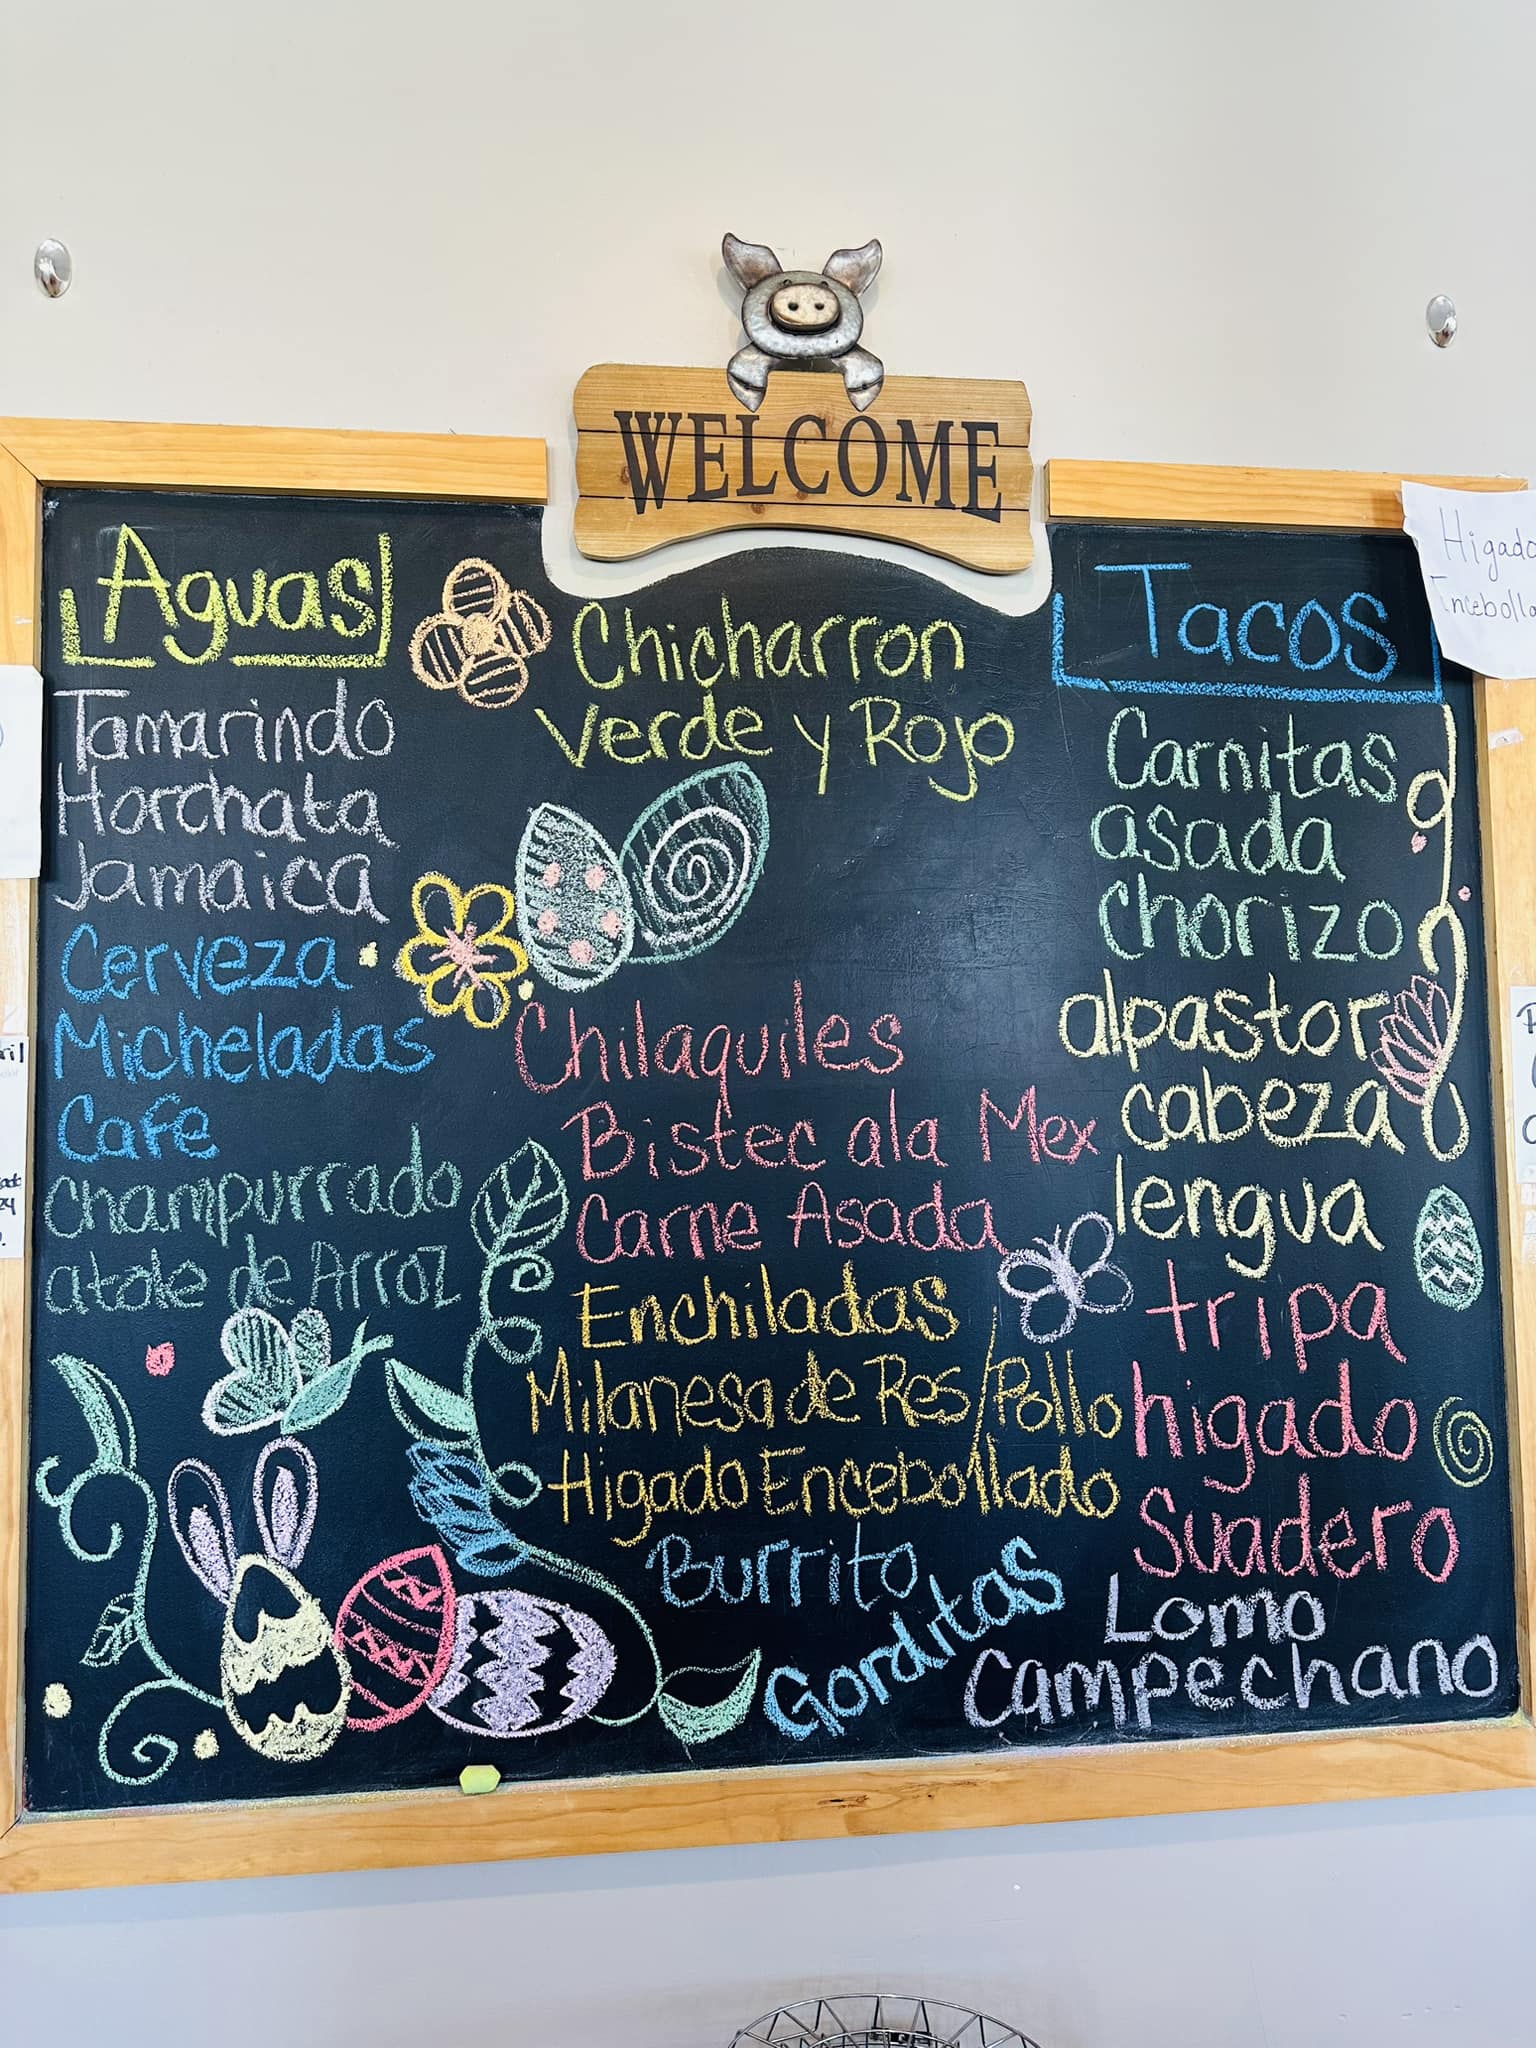 WELCOME
Aguas
Tamarindo
Horchata
Jamaica
Cerveza
Micheladas
Cafe
Champurrado
atole de Arroz
Chicharron
Verde y Rojo
Chilaquiles
Bistec ala Mex
Carne Asada
Enchiladas
Milanesa de Res/Pollo
Higado Encebollado
Burrito
Gorditas
Tacos
Carnitas
asada
chorizo
alpastor
cabeza
lengua
tripa
higado
Suadero
Lomo
Campechano
Higado
Encebolla